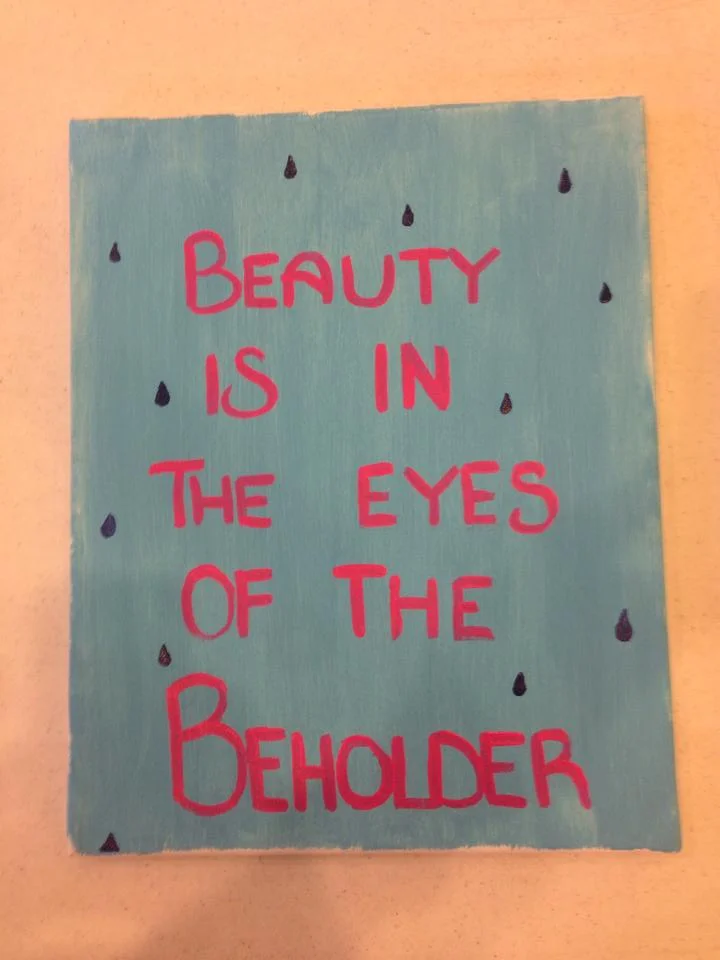 BEAUTY
IS IN
THE EYES
OF THE
BEHOLDER